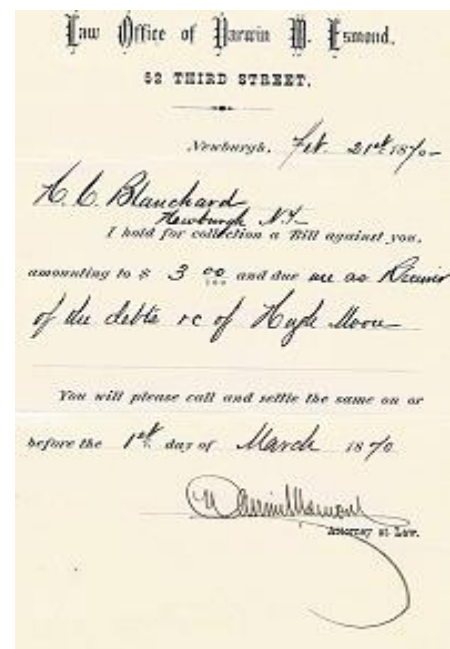 Law Office of Darwin W. Esmond,
52 THIRD STREET,
Newburgh, Feb. 21st 1870
H. C. Blanchard
Newburgh N.Y.
I hold for collection a Bill against you,
amounting to $ 3 00/100 and due me as Receiver
of the debts &c of Hugh Moore
You will please call and settle the same on or
before the 1st day of March 1870
Attorney at Law.